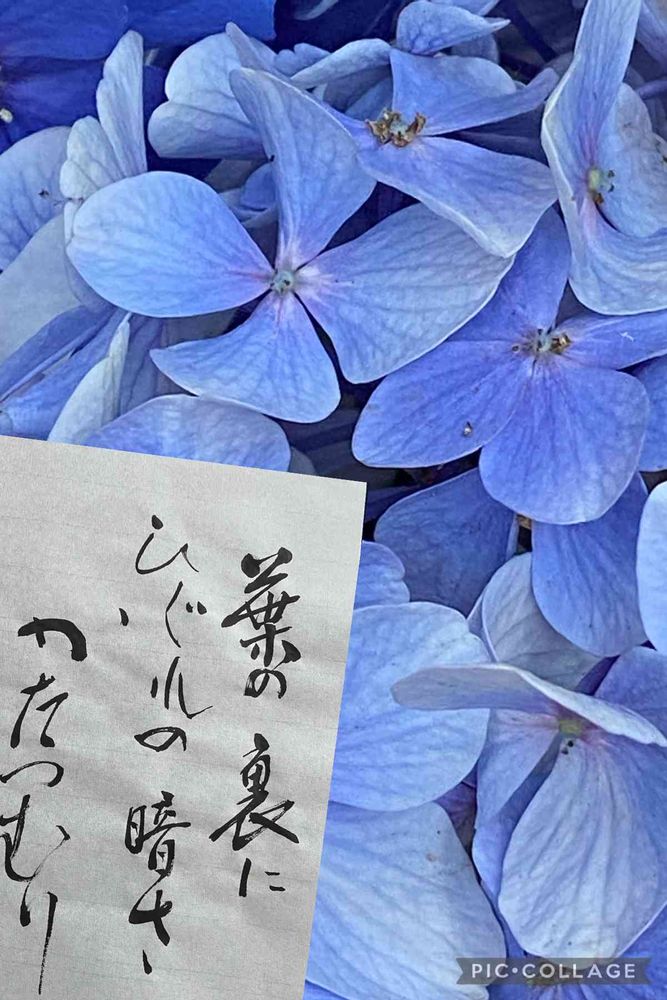 葉の裏に
ひぐれの暗さ
かたつむり
PIC•COLLAGE